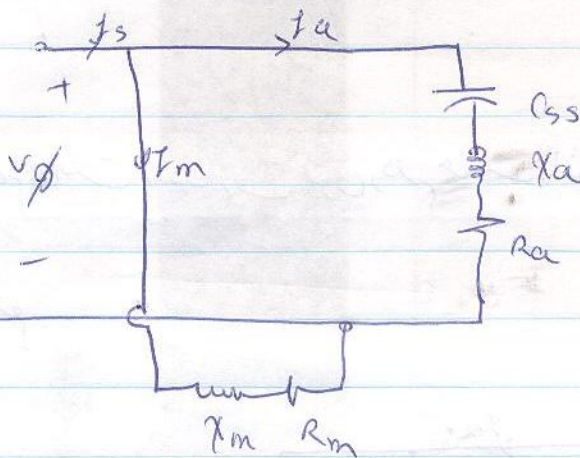 Is
Ia
+
Css
Vϕ
Im
Xa
Ra
-
Xm Rm